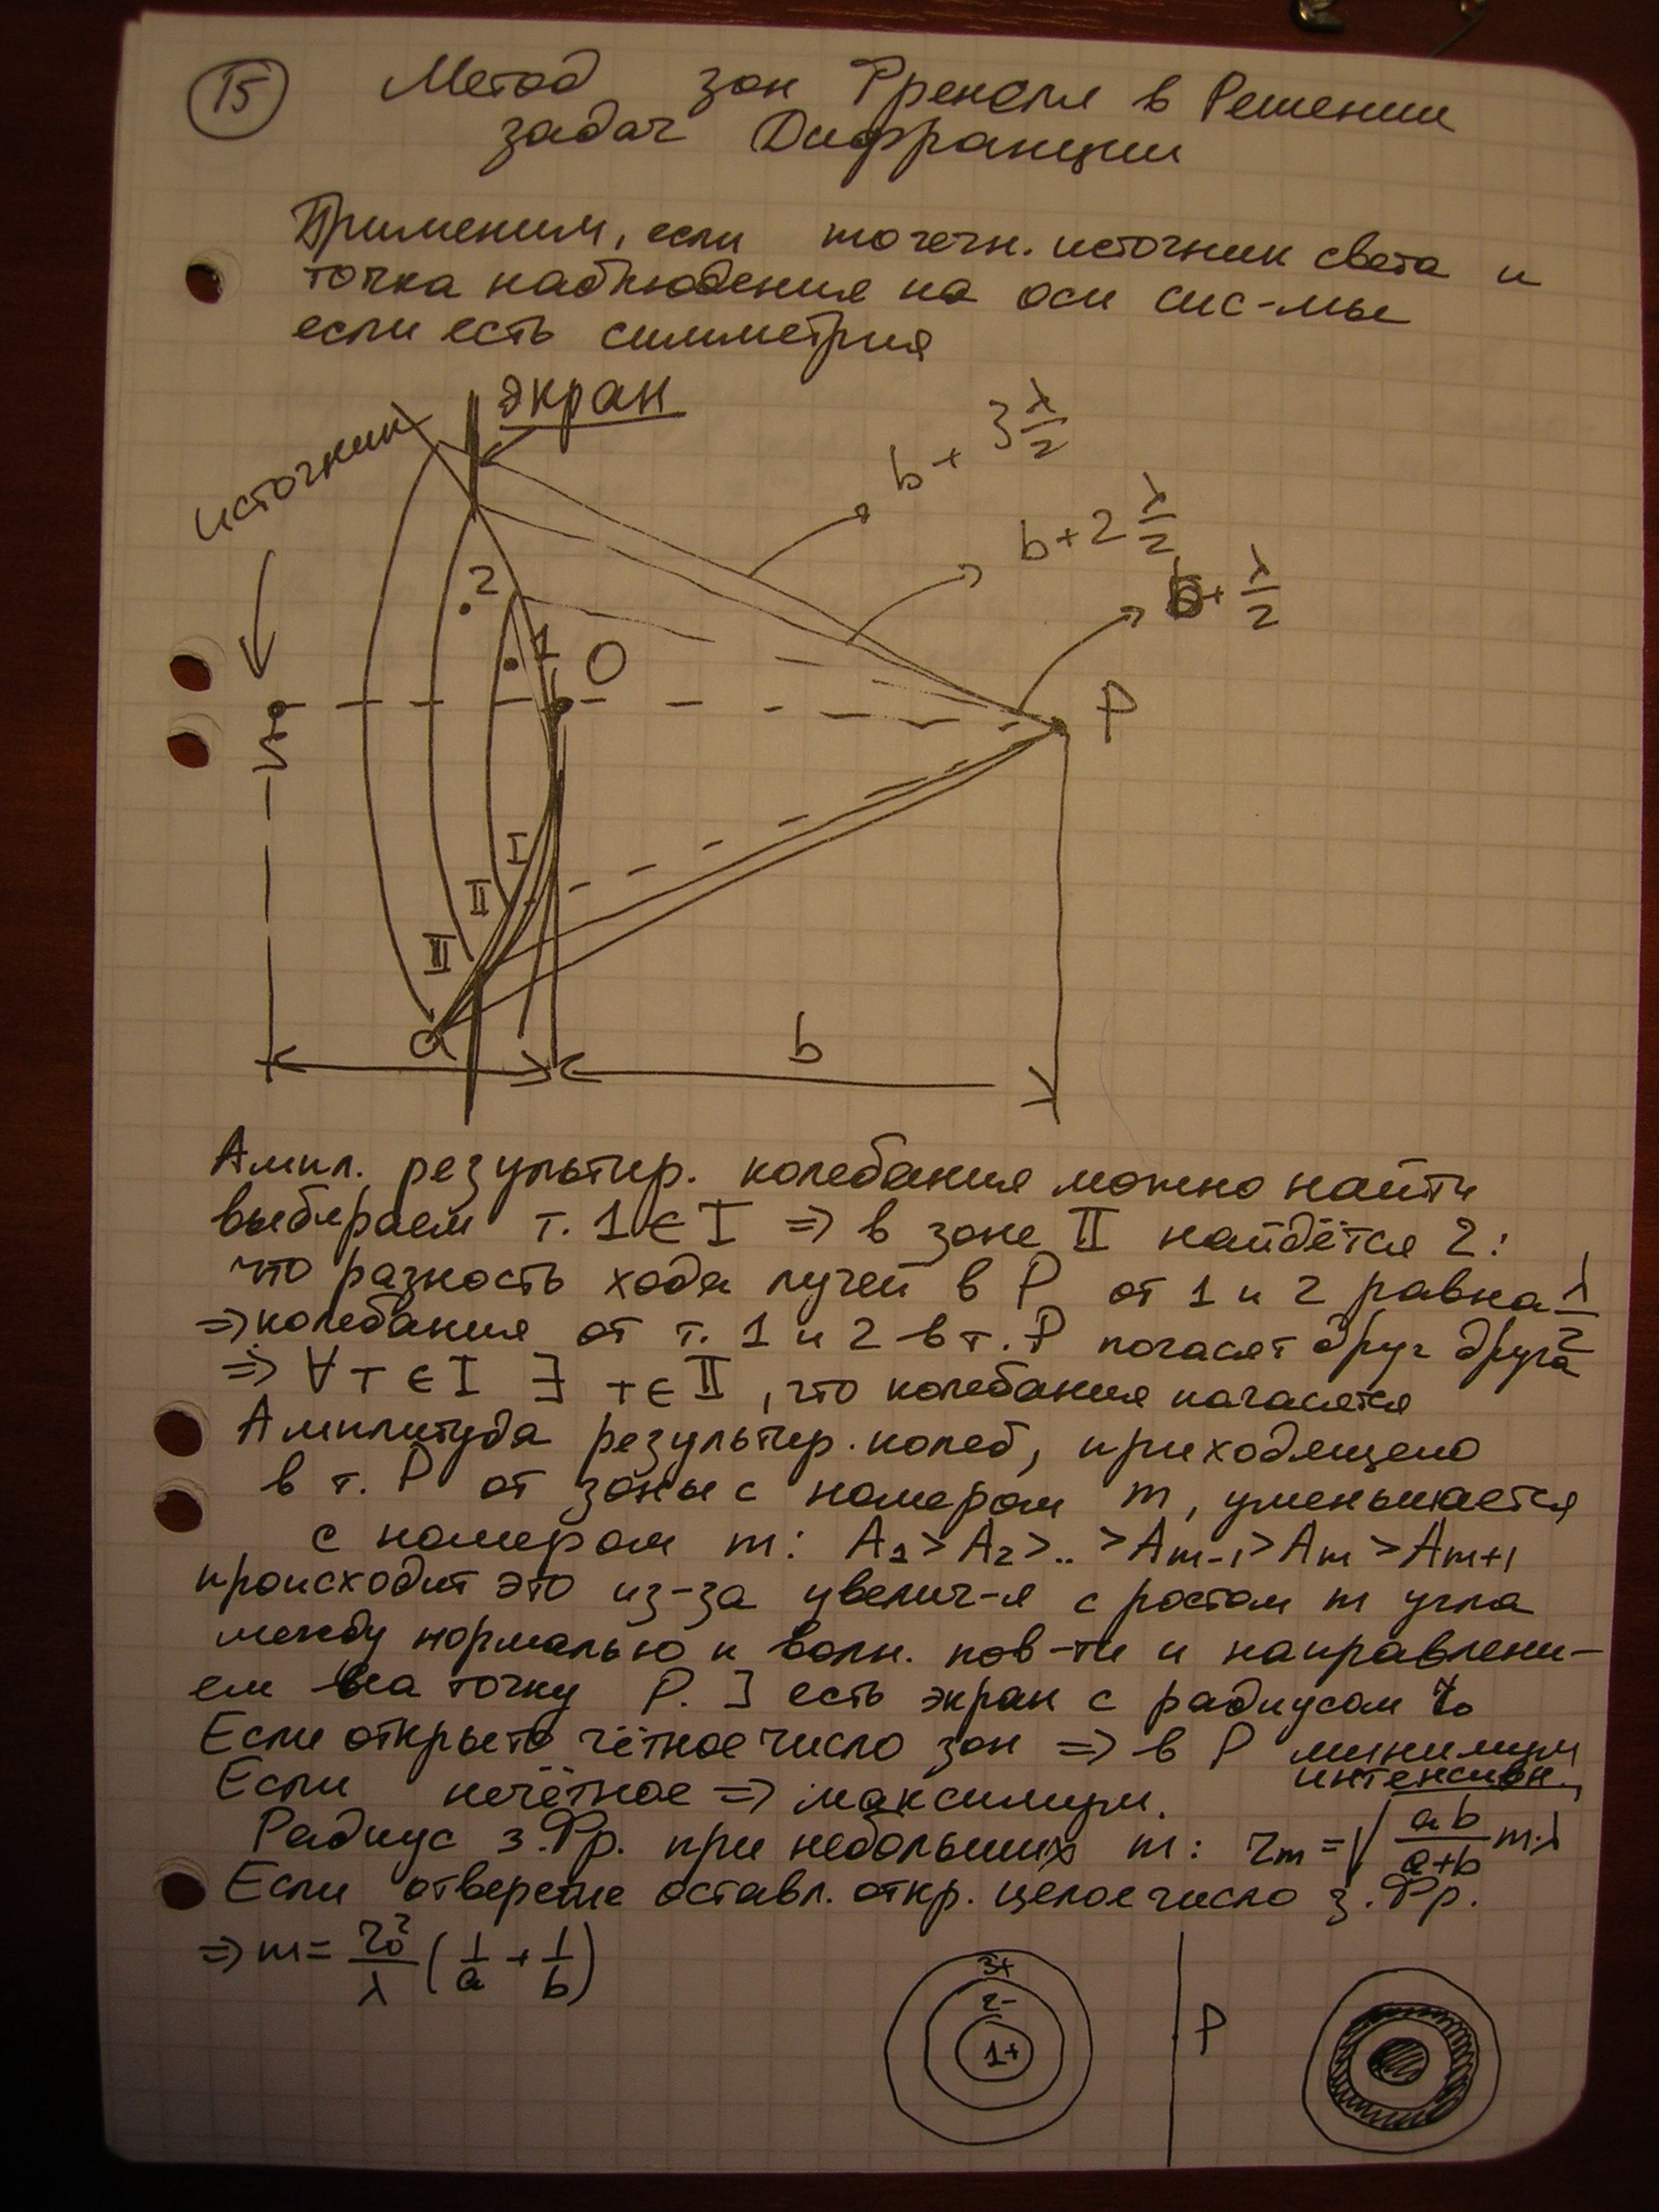 15
Метод зон Френеля в Решении
задач Дифракции
Применим, если точечн. источник света и
точка наблюдения на оси сис-мы
если есть симметрия
экран
источник
b + 3 λ/2
b + 2 λ/2
b + λ/2
2
1
O
P
I
II
III
a
b
Ампл. результир. колебания можно найти
выбираем т. 1 ∈ I ⇒ в зоне II найдётся 2:
что разность хода лучей в P от 1 и 2 равна λ/2
⇒ колебания от т. 1 и 2 в т. P погасят друг друга
⇒ ∀ т ∈ I ∃ т ∈ II, что колебания погасятся
Амплитуда результир. колеб, приходящего
в т. P от зоны с номером m, уменьшается
с номером m: A₁ > A₂ > .. > Aₘ₋₁ > Aₘ > Aₘ₊₁
происходит это из-за увелич-я с ростом m угла
между нормалью к волн. пов-ти и направлени-
ем на точку P. ] есть экран с радиусом r₀
Если открыто чётное число зон ⇒ в P минимум
интенсивн.
Если нечётное ⇒ максимум.
Радиус з. Фр. при небольших m: rₘ = √(ab/(a+b) mλ)
Если отверстие оставл. откр. целое число з. Фр.
⇒ m = r₀²/λ (1/a + 1/b)
3+
2-
1+
P